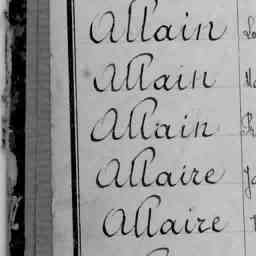 Allain
Allain
Allain
Allaire
Allaire